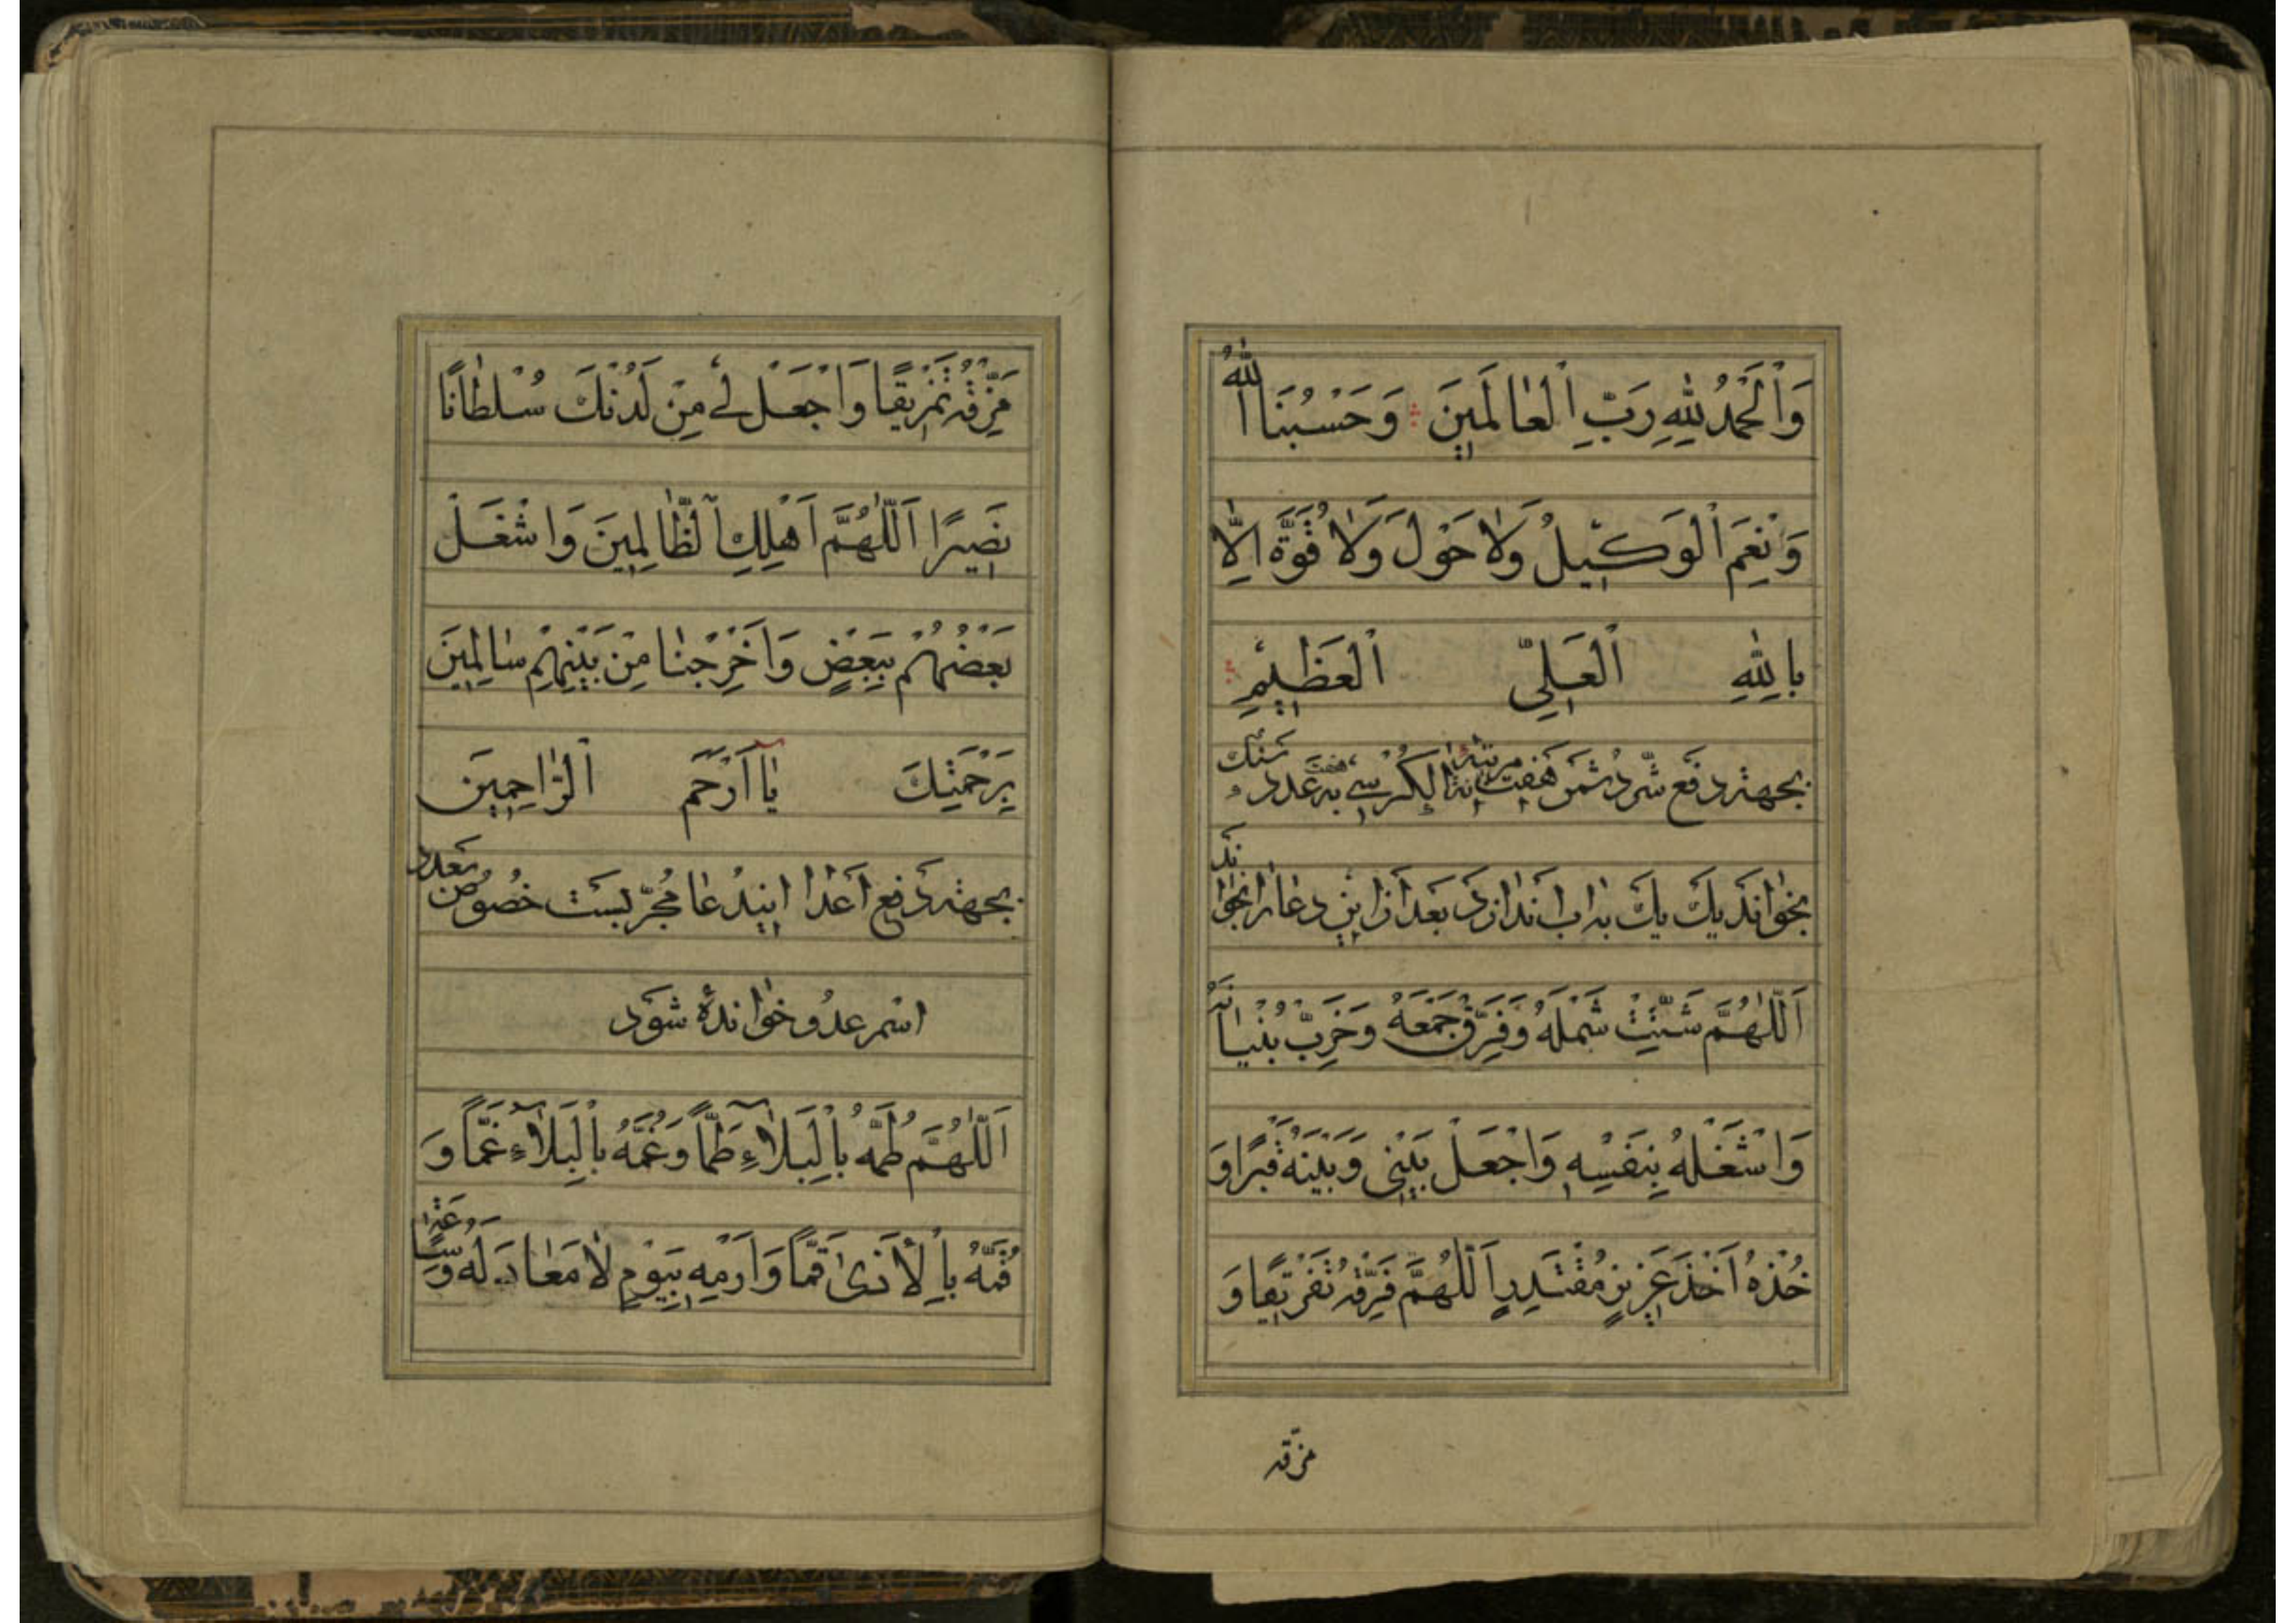 وَالْحَمْدُ لِلّٰهِ رَبِّ الْعٰالَمينَ وَحَسْبُنَا اللّٰهُ
وَنِعْمَ الْوَكيلُ وَلاٰ حَوْلَ وَلاٰ قُوَّةَ اِلّٰا
بِاللّٰهِ الْعَلِيِّ الْعَظيمِ
بجهة دفع شرّ دشمن هفت مرتبه اية الكرسي به هفت عدد سنك
بخواند يك يك به اب اندازد بعد از اين دعا را بخواند
اَللّٰهُمَّ شَتِّتْ شَمْلَهُ وَفَرِّقْ جَمْعَهُ وَخَرِّبْ بُنْيٰانَهُ
وَاشْغَلْهُ بِنَفْسِهِ وَاجْعَلْ بَيْنى وَبَيْنَهُ قَبْرًا وَ
خُذْهُ اَخْذَ عَزيزٍ مُقْتَدِرٍ اَللّٰهُمَّ فَرِّقْهُ تَفْريقًا وَ
مزّقه
مَزِّقْهُ تَمْزيقًا وَاجْعَلْ لى مِنْ لَدُنْكَ سُلْطٰانًا
نَصيرًا اَللّٰهُمَّ اَهْلِكِ الظّٰالِمينَ وَاشْغَلْ
بَعْضَهُمْ بِبَعْضٍ وَاَخْرِجْنٰا مِنْ بَيْنِهِمْ سٰالِمينَ
بِرَحْمَتِكَ يٰا اَرْحَمَ الرّٰاحِمينَ
بجهة دفع اعدا اين دعا مجرّبست خصوص بعدد
اسم عدو خوانده شود
اَللّٰهُمَّ طُمَّهُ بِالْبَلاٰءِ طَمًّا وَعُمَّهُ بِالْبَلاٰءِ عَمًّا وَ
قُمَّهُ بِالْاَذىٰ قَمًّا وَارْمِهِ بِيَوْمٍ لاٰ مَعٰادَ لَهُ وَسٰاعَةٍ